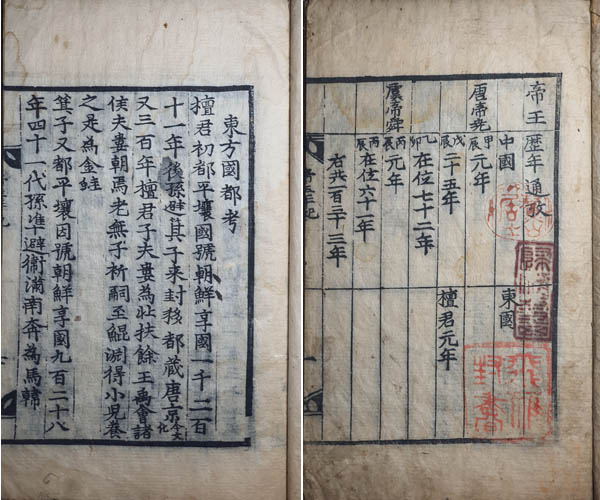 東方國都考
檀君初都平壤國號朝鮮享國一千二百
十一年後孫避其子来封移都藏唐京今文化
又三百年檀君子夫婁為北扶餘王禹會諸
侯夫婁朝焉老無子祈嗣至鯤淵得小兒養
之是為金蛙
箕子又都平壤因號朝鮮享國九百二十八
年四十一代孫準避衛滿南奔為馬韓
帝王歷年通攷
中國 東國
唐帝堯 甲辰元年
戊辰二十五年 檀君元年
乙卯在位七十二年
虞帝舜 丙辰元年
丙辰在位六十一年
右共一百三十三年